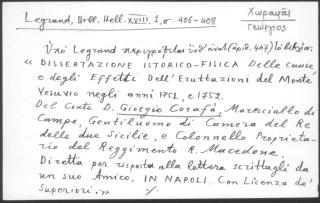 Legrand, Bibl. Hell. XVIII, 1, σ. 406-408
Χωραφᾶς
Γεώργιος
Ὑπὸ Legrand περιγράφεται (ἀριθ. 407) τὸ
« DISSERTAZIONE ISTORICO-FISICA Delle cause,
e degli Effetti Dell'Eruttazioni del Monte
Vesuvio negli anni 1751. e 1752.
Del Conte D. Giorgio Corafà, Maresciallo di
Campo, Gentiluomo di Camera del Re
delle due Sicilie, e Colonnello Proprieta-
rio del Reggimento R. Macedone.
Diretta per risposta alla lettera scrittagli da
un suo Amico. IN NAPOLI. Con Licenza de'
Superiori.» ./.